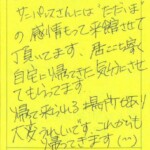 サンパレスさんには"ただいま"
の感情もって来館させて
頂いてます。居ごこち良く
自宅に帰ってきた気分にさせ
てもらってます。
帰って来られる場所があり
大変うれしいです。これからも
帰ってきます